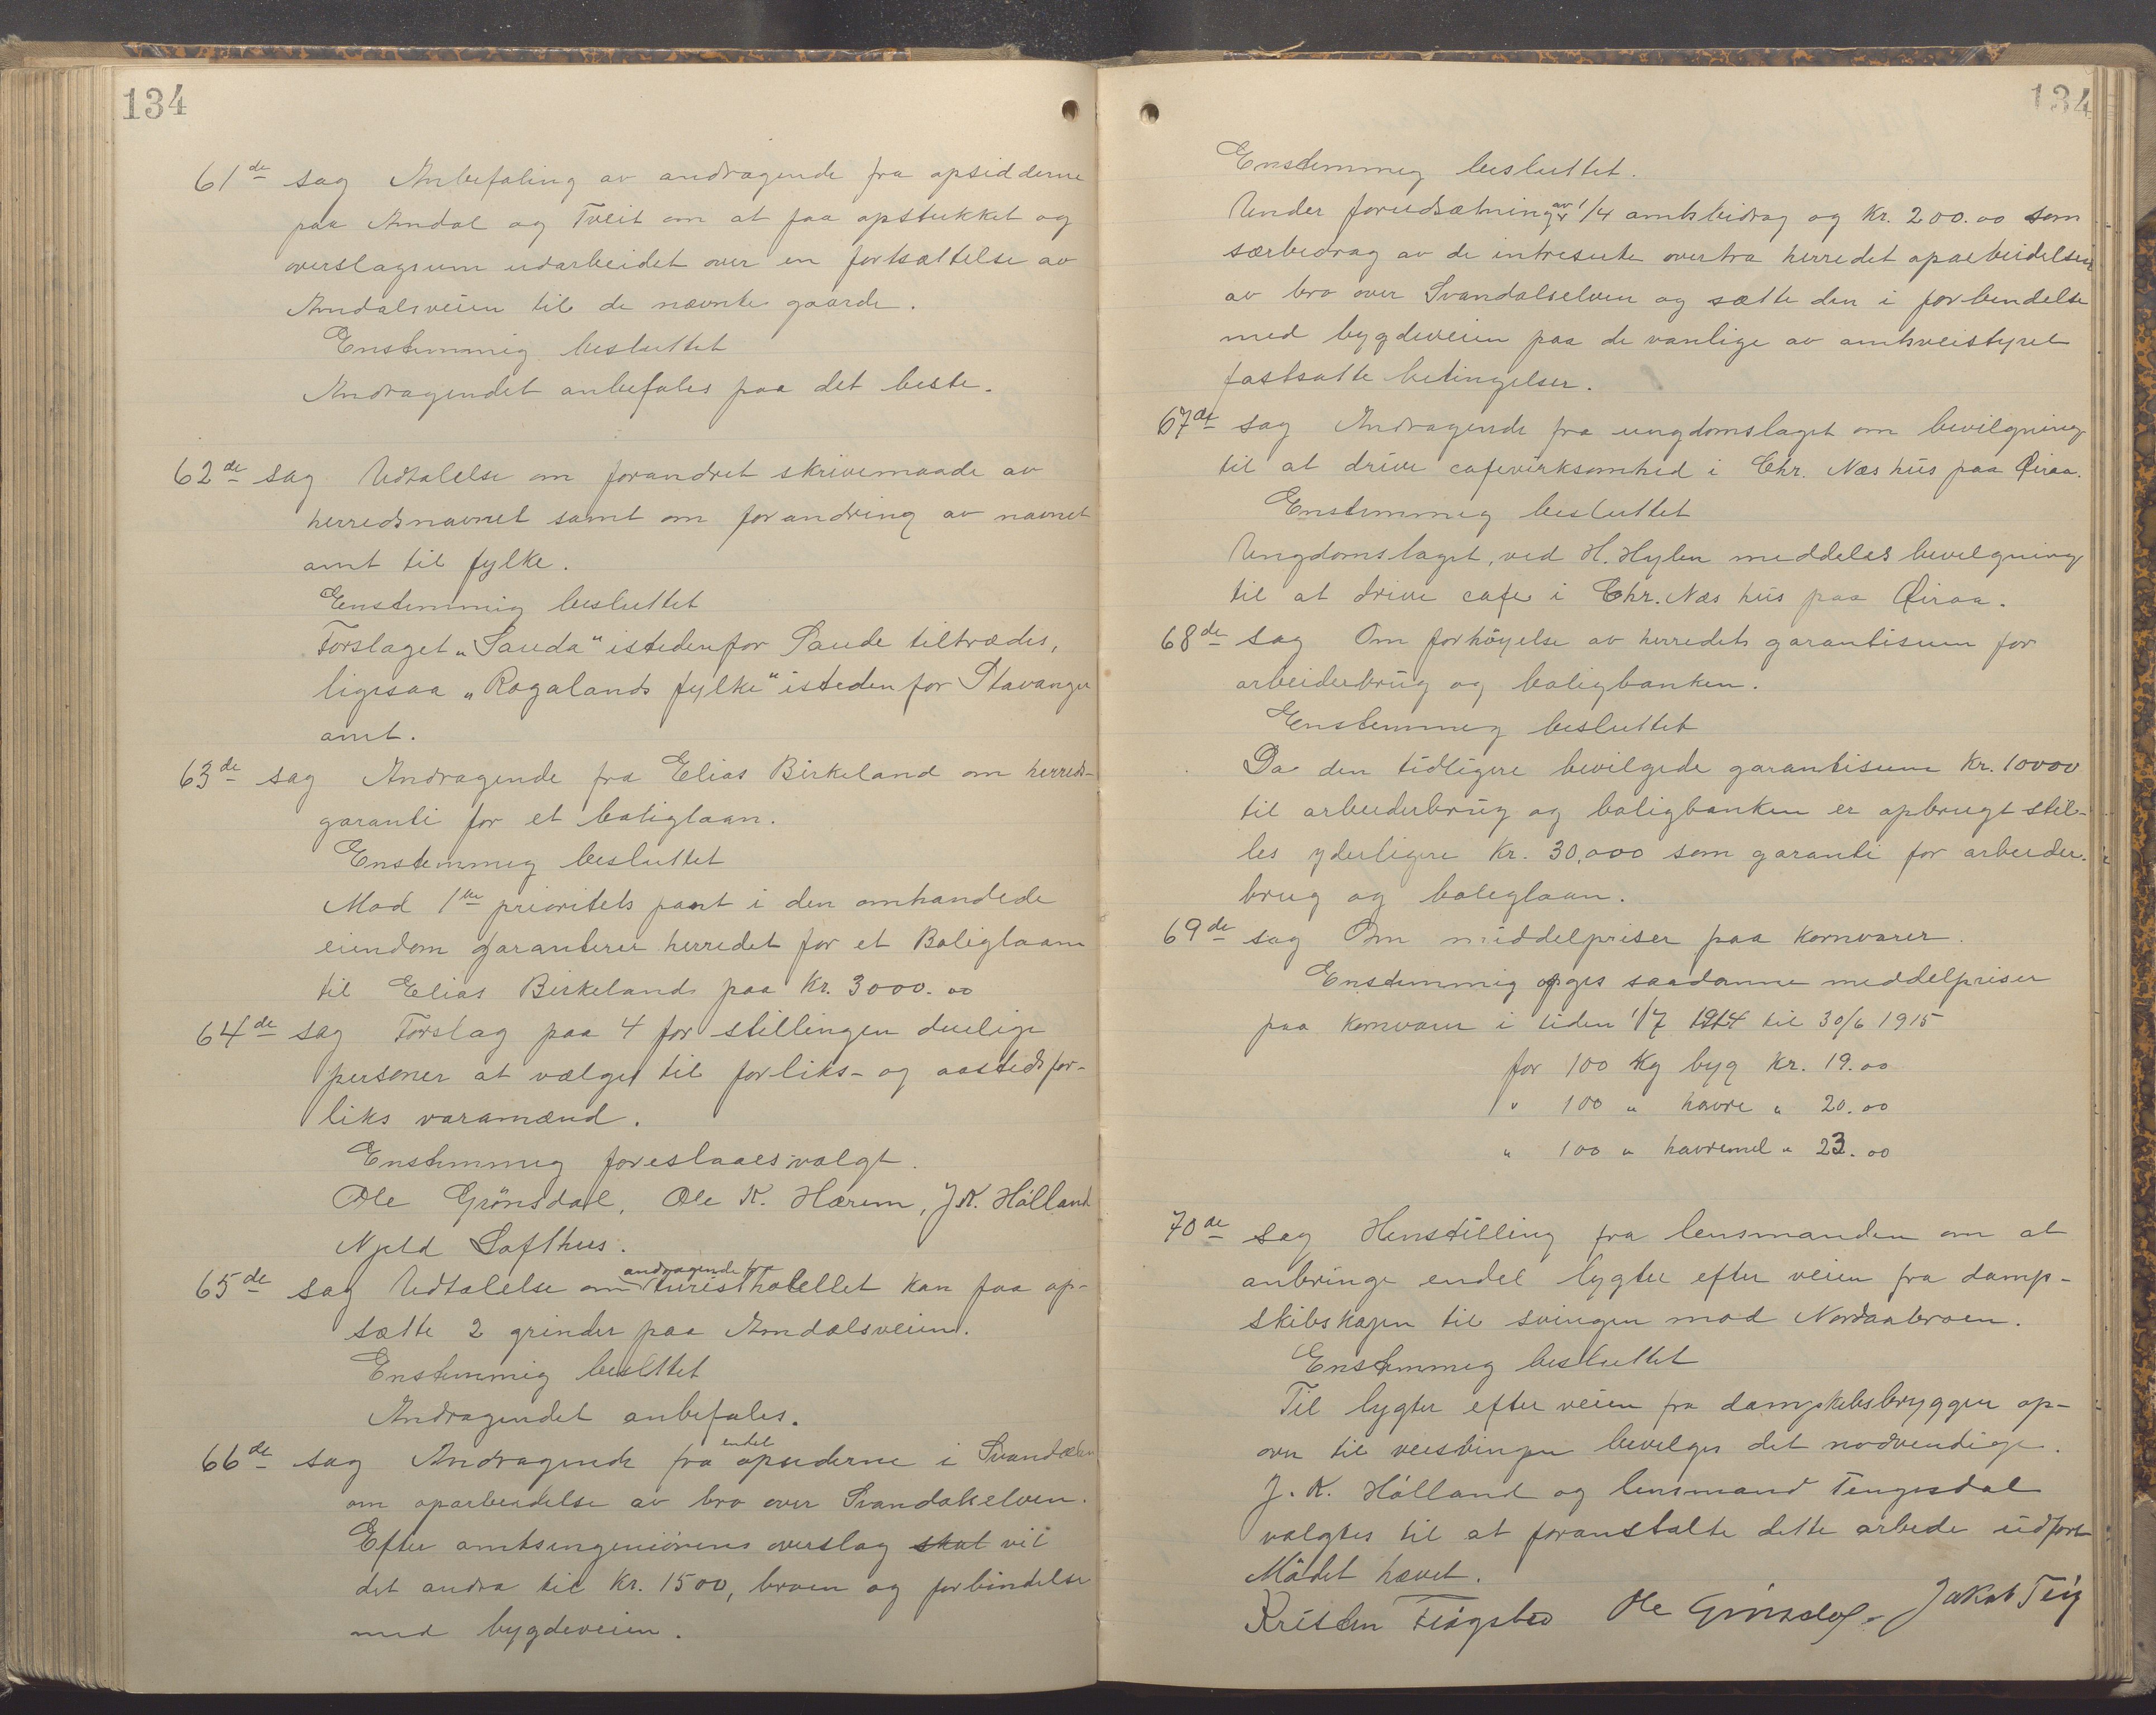 134
61de sag Anbefaling av andragende fra opsidderne
paa Amdal og Tveit om at faa opstukket og
overslagsum udarbeidet over en fortsættelse av
Amdalsveien til de nævnte gaarde.
Enstemmig besluttet
Andragendet anbefales paa det beste.
62de sag Udtalelse om forandret skrivemaade av
herredsnavnet samt om forandring av navnet
amt til fylke.
Enstemmig besluttet
Forslaget „Sauda" istedenfor Saude tiltrædes,
ligesaa „Rogalands fylke" istedenfor Stavanger
amt.
63de sag Andragende fra Elias Birkeland om herreds-
garanti for et boliglaan.
Enstemmig besluttet
Mod 1ste prioritets pant i den omhandlede
eiendom garanterer herredet for et Boliglaan
til Elias Birkelands paa Kr. 3000.00
64de sag Forslag paa 4 for stillingen duelige
personer at vælges til forliks- og aastedsfor-
liks varamænd.
Enstemmig foreslaaes valgt.
Ole Grönsdal, Ole K. Hærem, J.K. Hölland
Njeld Lofthus.
65de sag Udtalelse om andragende fra turisthotellet kan faa op-
sætte 2 grinder paa Amdalsveien.
Enstemmig beslttet
Andragendet anbefales.
66de sag Andragende fra endel opsiderne i Svandalen
om oparbeidelse av bro over Svandalselven.
Efter amtsingeniörens overslag skal vil
det andra til Kr. 1500, broen og forbindelse
med bygdeveien.
134
Enstemmig besluttet.
Under forudsætning av 1/4 amtsbidrag og Kr. 200.00 som
særbidrag av de intreserte overtra herredet oparbeidelsen
av bro over Svandalselven og sætte den i forbindelse
med bygdeveien paa de vanlige av amtsveistyret
fastsatte betingelser.
67de sag Andragende fra ungdomslaget om bevilgning
til at drive cafevirksomhed i Chr. Næs hus paa Øiraa.
Enstemmig besluttet
Ungdomslaget, ved H. Hylen meddeles bevilgning
til at drive cafe i Chr. Næs hus paa Øiraa.
68de sag Om forhöyelse av herredets garantisum for
arbeiderbrug og boligbanken.
Enstemmig besluttet
Da den tidligere bevilgede garantisum Kr. 10000
til arbeiderbrug og boligbanken er opbrugt stil-
les yderligere Kr. 30,000 som garanti for arbeider-
brug og boliglaan.
69de sag Om middelpriser paa kornvarer.
Enstemmig opges saadanne middelpriser
paa kornvarer i tiden 1/7 1914 til 30/6 1915
for 100 Kg byg Kr. 19.00
" 100 " havre " 20.00
" 100 " havremel " 23.00
70de sag Henstilling fra lensmanden om at
anbringe endel lygter efter veien fra damp-
skibskajen til svingen mod Nordaabroen.
Enstemmig besluttet
Til lygter efter veien fra dampskibsbryggen op-
over til veisvingen bevilges det nødvendige.
J. K. Hölland og lensmand Tengesdal
valgtes til at foranstalte dette arbede udfört
Mödet hævet.
Kristen Ole Grönsdal. Jakob Teig